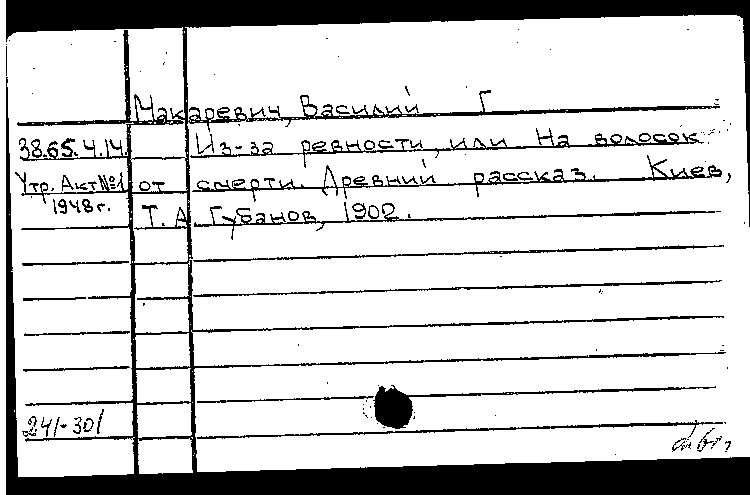 Макаревич, Василий Г
38.65.4.14 Из-за ревности, или На волосок
Утр. Акт №1 от смерти. Древний рассказ. Киев,
1948г. Т. А Губанов, 1902.
241-301